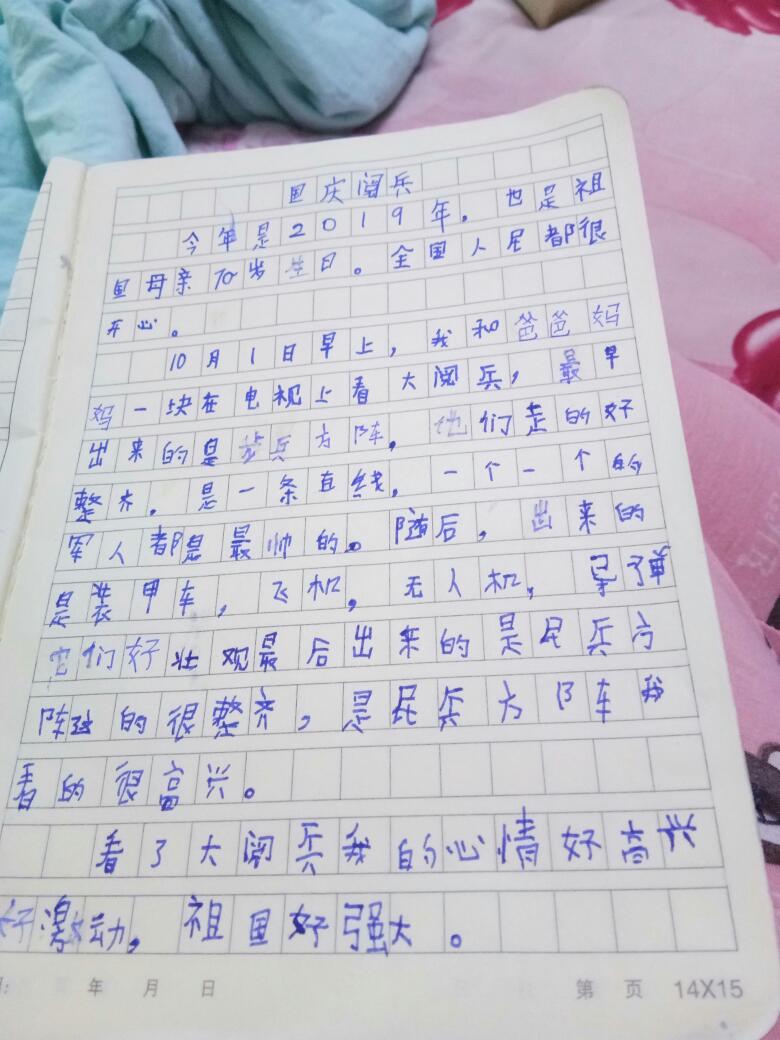 国庆阅兵
今年是2019年。也是祖
国母亲70岁生日。全国人民都很
开心。
10月1日早上，我和爸爸妈
妈一块在电视上看大阅兵，最早
出来的是步兵方阵。他们走的好
整齐。是一条直线，一个一个的
军人都是最帅的。随后，出来的
是装甲车，飞机，无人机，导弹
它们好壮观最后出来的是民兵方
阵的很整齐，是民兵方阵我
看的很高兴。
看了大阅兵我的心情好高兴
好激动，祖国好强大。
年 月 日
第 页 14X15